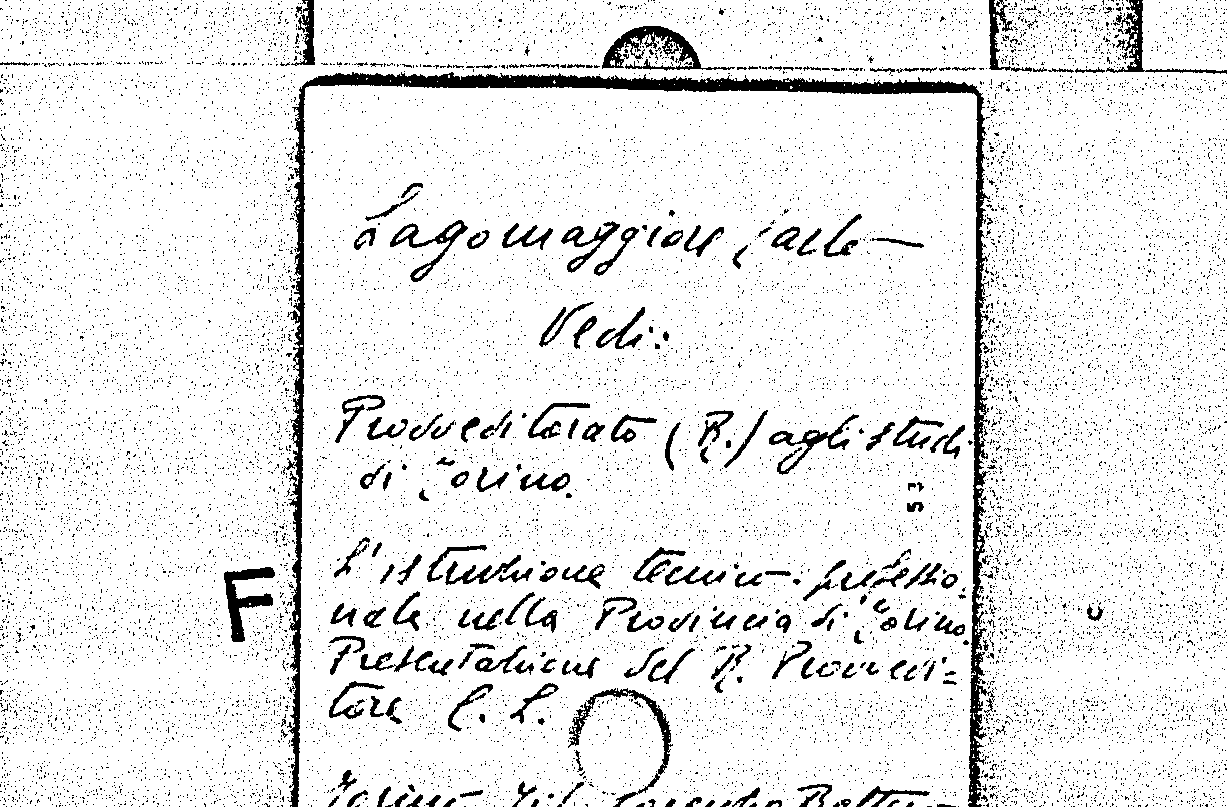 Lagomaggiore Carlo —
Vedi:
Provveditorato (R.) agli studi
di Torino.
53
L'istruzione tecnico-professio-
F
nale nella Provincia di Torino.
Presentazione del R. Provvedi=
tore C. L.
Torino Tip. Lorenzo Rattero